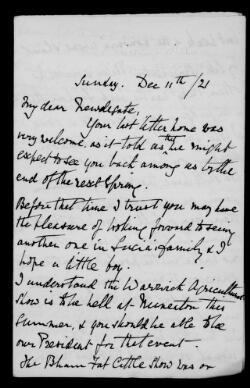 Sunday. Dec 11th/21
My dear Newdegate,
Your last letter home was
very welcome, as it told us that we might
expect to see you back among us by the
end of the next Spring.
Before that time I trust you may have
the pleasure of looking forward to seeing
another one in Lucia's family, & I
hope a little boy.
I understand the Warwick Agricultural
Show is to be held at Nuneaton this
Summer, & you should be able to be
our President for that event.
The Bham Fat Cattle Show was on